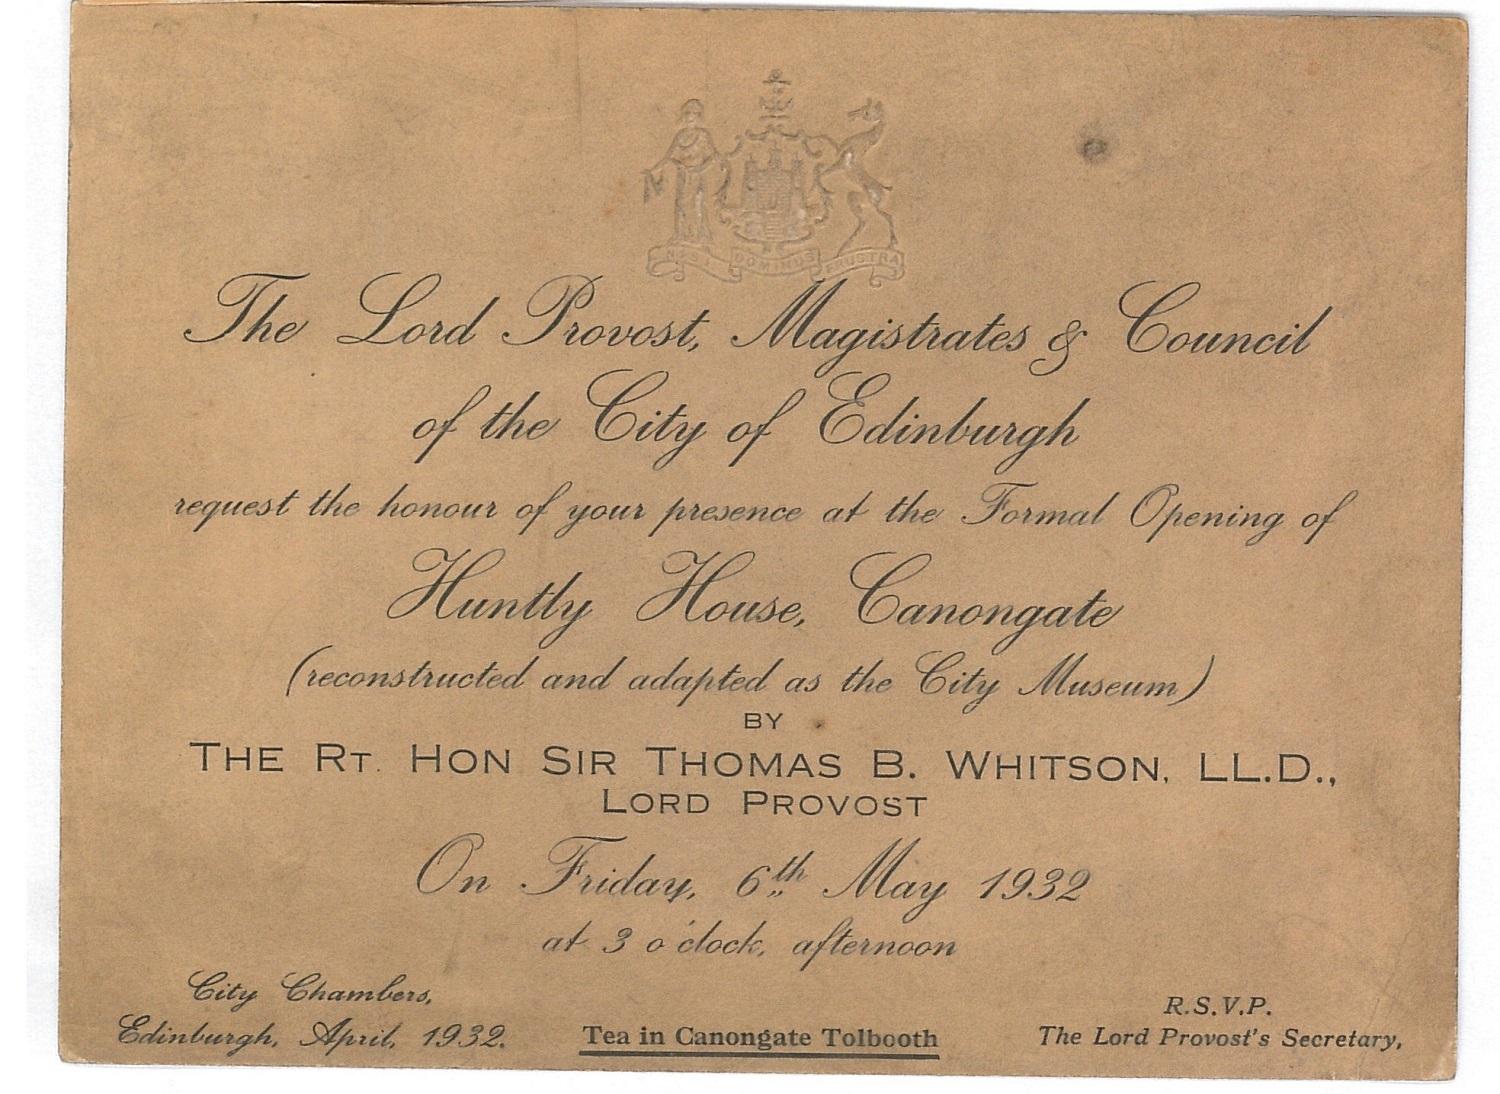 NISI DOMINUS FRUSTRA
The Lord Provost, Magistrates & Council
of the City of Edinburgh
request the honour of your presence at the Formal Opening of
Huntly House, Canongate
(reconstructed and adapted as the City Museum)
BY
THE RT. HON SIR THOMAS B. WHITSON, LL.D.,
LORD PROVOST
On Friday, 6th May 1932
at 3 o'clock, afternoon
City Chambers,
Edinburgh, April, 1932.
Tea in Canongate Tolbooth
R.S.V.P.
The Lord Provost's Secretary,